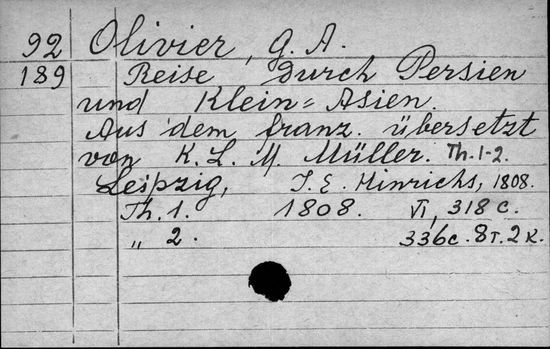 92 Olivier, G. A.
189 Reise durch Persien
und Klein=Asien.
Aus dem franz. übersetzt
von K. L. M. Müller. Th. 1-2.
Leipzig, J. E. Hinrichs, 1808.
Th. 1. 1808. VI, 318 c.
„ 2. 336 c. 8 т. 2 к.